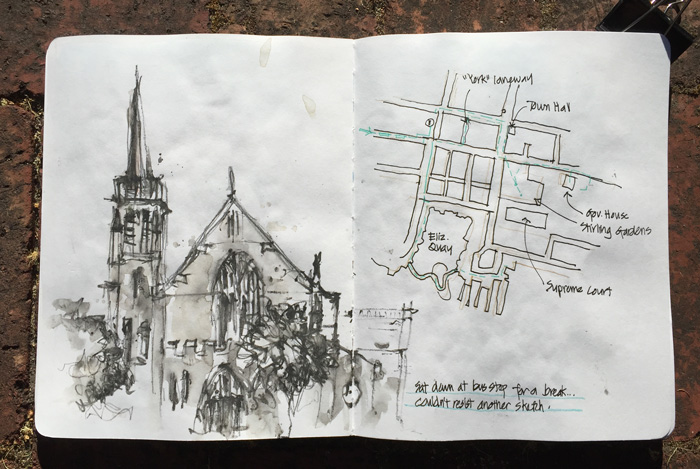 "York" laneway
Town Hall
①
Gov. House
Stirling Gardens
Eliz.
Quay
Supreme Court
sat down at bus stop for a break...
couldn't resist another sketch.